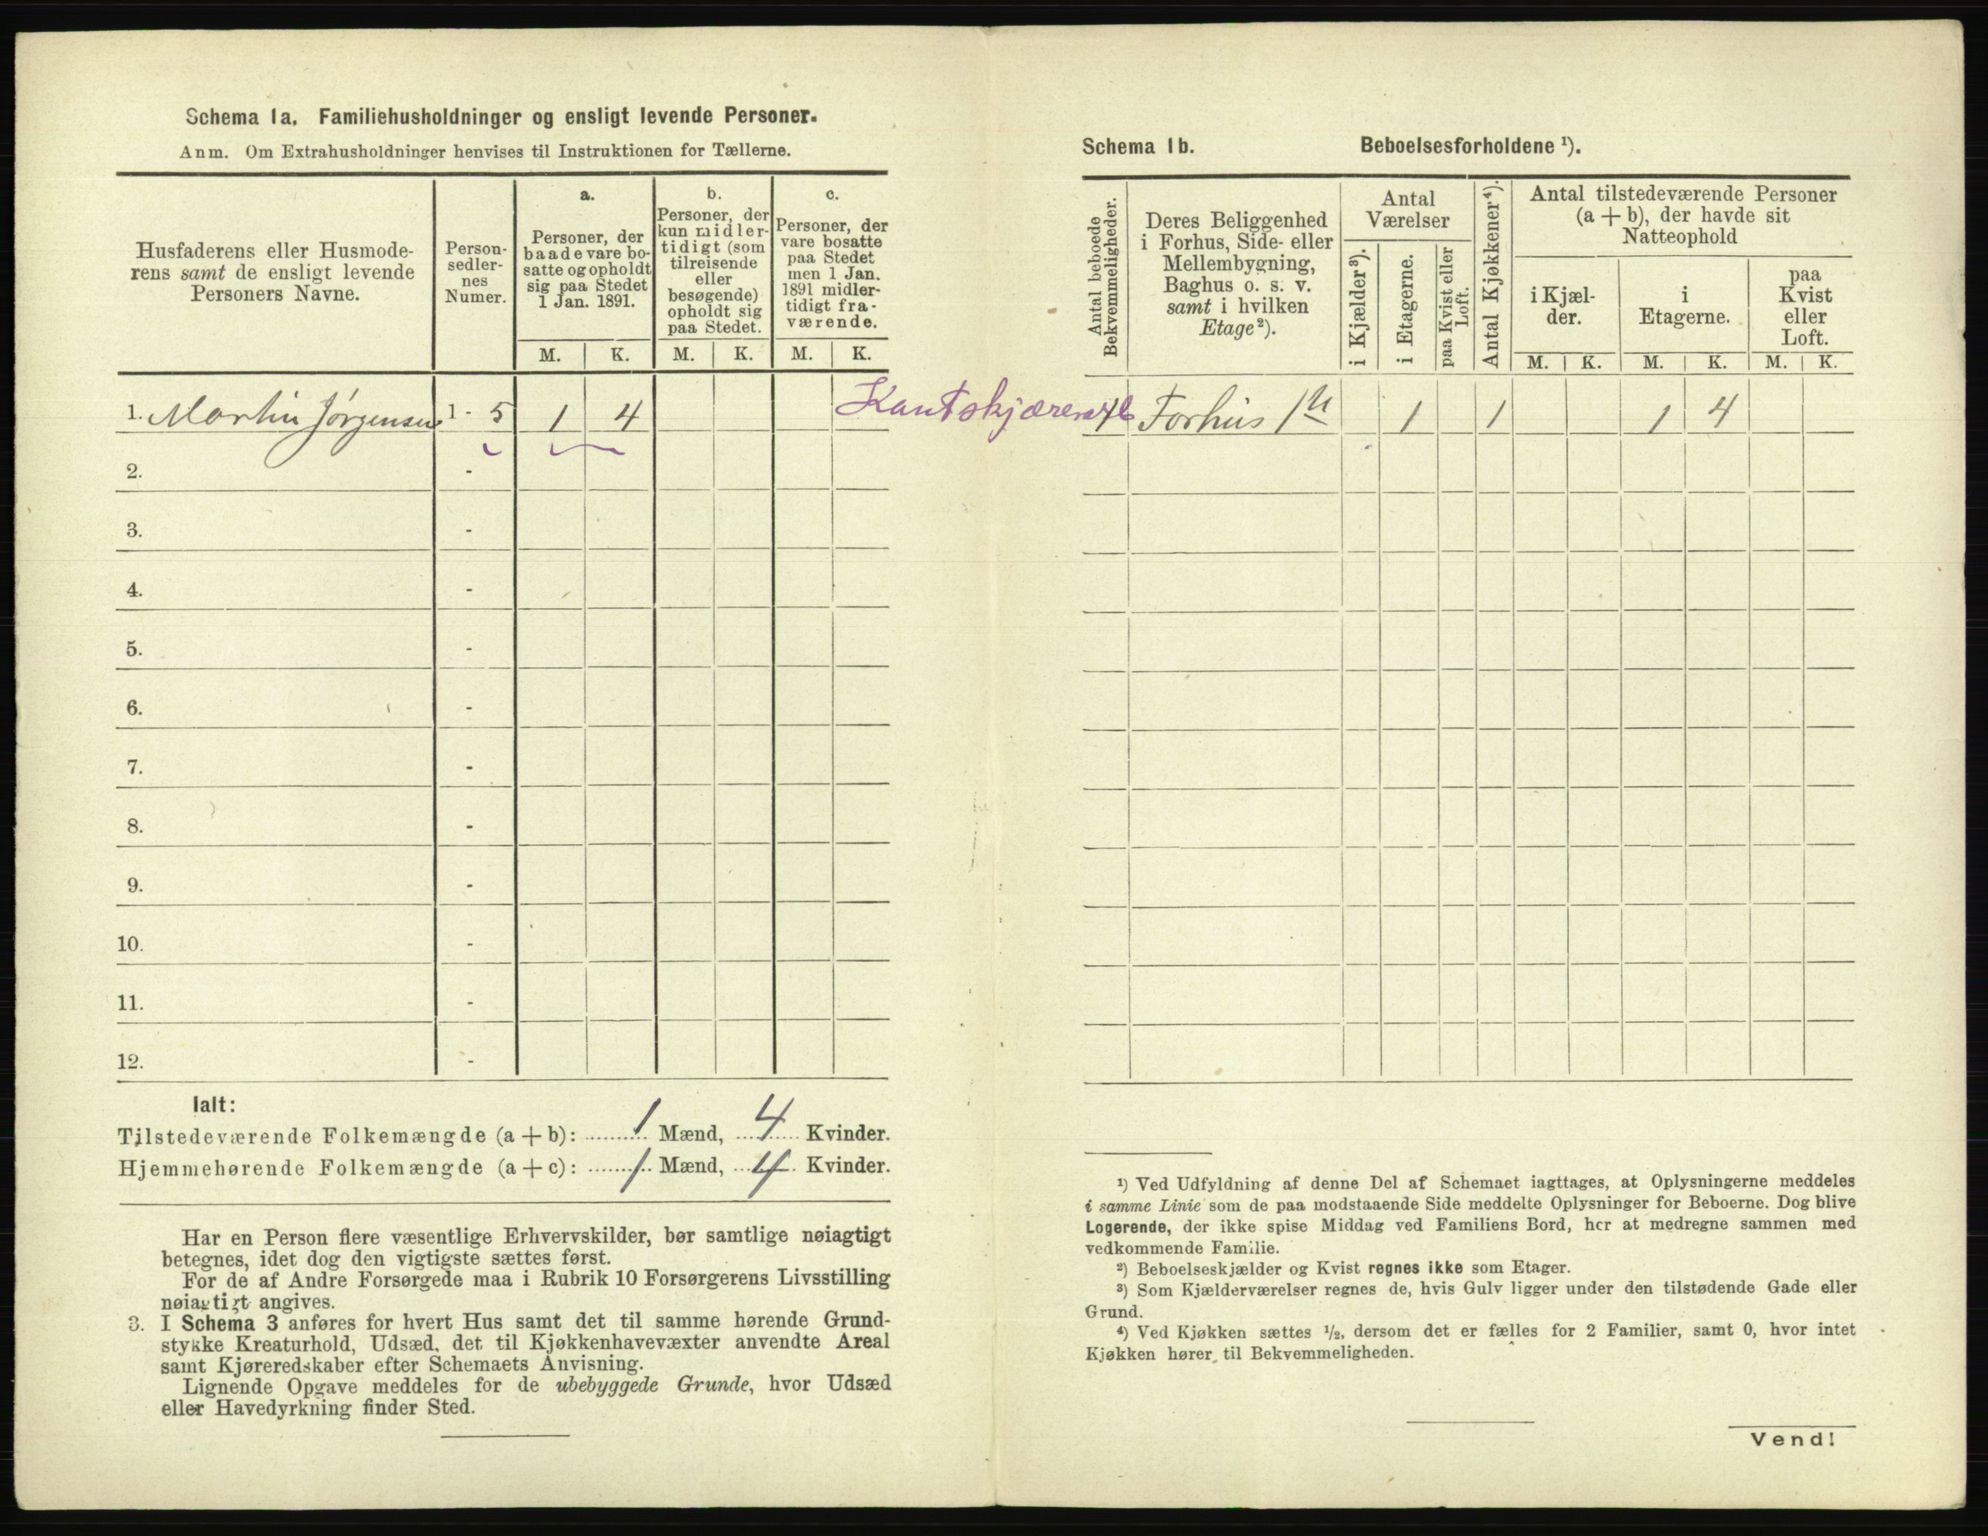 Schema 1a. Familiehusholdninger og ensligt levende Personer.
Anm. Om Extrahusholdninger henvises til Instruktionen for Tællerne.
Husfaderens eller Husmode-
rens samt de ensligt levende
Personers Navne.
Person-
sedler-
nes
Numer.
a.
Personer, der
baade vare bo-
satte og opholdt
sig paa Stedet
1 Jan. 1891.
b.
Personer, der
kun midler-
tidigt (som
tilreisende
eller
besøgende)
opholdt sig
paa Stedet.
c.
Personer, der
vare bosatte
paa Stedet
men 1 Jan.
1891 midler-
tidigt fra-
værende.
M. K. M. K. M. K.
1. Martin Jørgensen 1 - 5 1 4
2. -
3. -
4. -
5. -
6. -
7. -
8. -
9. -
10. -
11. -
12. -
Ialt:
Tilstedeværende Folkemængde (a + b): 1 Mænd, 4 Kvinder.
Hjemmehørende Folkemængde (a + c): 1 Mænd, 4 Kvinder.
Har en Person flere væsentlige Erhvervskilder, bør samtlige nøiagtigt
betegnes, idet dog den vigtigste sættes først.
For de af Andre Forsørgede maa i Rubrik 10 Forsørgerens Livsstilling
nøiagtigt angives.
3. I Schema 3 anføres for hvert Hus samt det til samme hørende Grund-
stykke Kreaturhold, Udsæd, det til Kjøkkenhavevæxter anvendte Areal
samt Kjøreredskaber efter Schemaets Anvisning.
Lignende Opgave meddeles for de ubebyggede Grunde, hvor Udsæd
eller Havedyrkning finder Sted.
Schema 1b. Beboelsesforholdene ¹).
Antal beboede
Bekvemmeligheder.
Deres Beliggenhed
i Forhus, Side- eller
Mellembygning,
Baghus o. s. v.
samt i hvilken
Etage²).
Antal
Værelser
i Kjælder³).
i Etagerne.
paa Kvist eller
Loft.
Antal Kjøkkener⁴).
Antal tilstedeværende Personer
(a + b), der havde sit
Natteophold
i Kjæl-
der.
i
Etagerne.
paa
Kvist
eller
Loft.
M. K. M. K. M. K.
1 Forhus 1 1 1 1 4
¹) Ved Udfyldning af denne Del af Schemaet iagttages, at Oplysningerne meddeles
i samme Linie som de paa modstaaende Side meddelte Oplysninger for Beboerne. Dog blive
Logerende, der ikke spise Middag ved Familiens Bord, her at medregne sammen med
vedkommende Familie.
²) Beboelseskjælder og Kvist regnes ikke som Etager.
³) Som Kjælderværelser regnes de, hvis Gulv ligger under den tilstødende Gade eller
Grund.
⁴) Ved Kjøkken sættes ½, dersom det er fælles for 2 Familier, samt 0, hvor intet
Kjøkken hører til Bekvemmeligheden.
Vend!